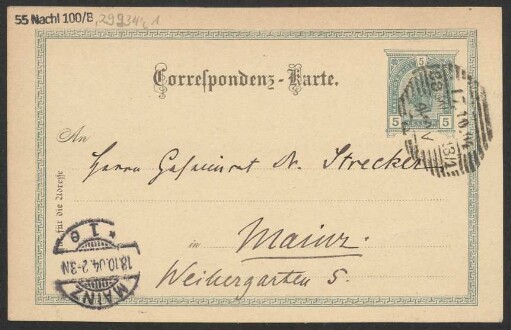 55 Nachl 100/B,29934,1
5
5 5
Correspondenz-Karte.
An
Herrn Geheimrat Dr. Strecker
in Mainz.
Weihergarten 5.
für die Adresse
17.10.04
MAINZ
18.10.04.2-3N
* 1e